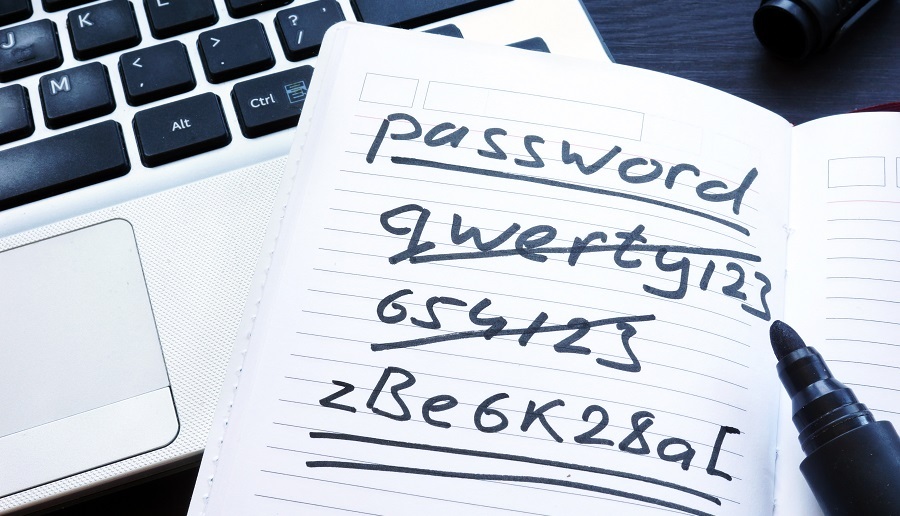 K
? /
J
> .
< ,
M
Ctrl
Alt
password
qwerty123
654123
zBe6K28a[